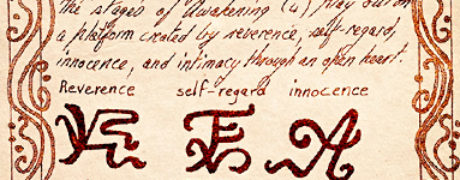 the stages of Awakening (4) play out on
a platform created by reverence, self-regard,
innocence, and intimacy through an open heart.
Reverence self-regard innocence